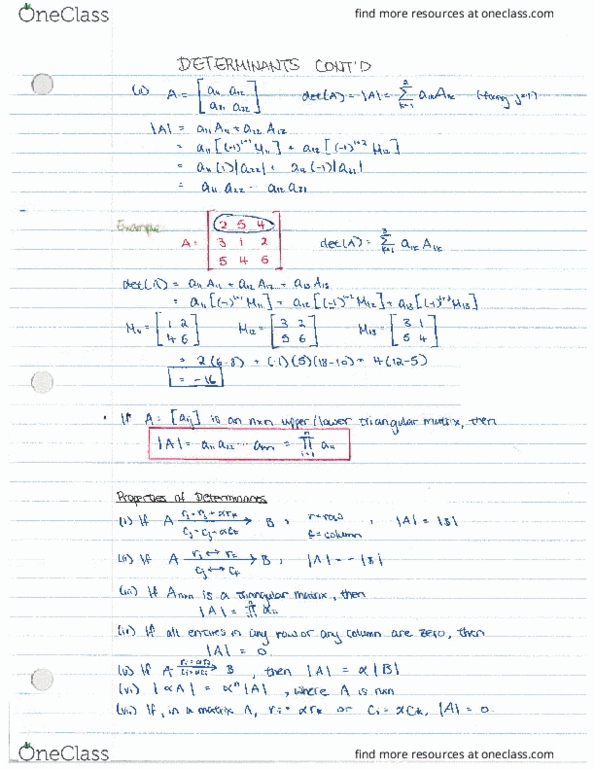 OneClass
find more resources at oneclass.com
DETERMINANTS CONT'D
(a) A = [a₁₁ a₁₂
a₂₁ a₂₂] det(A) = |A| = Σ²ₖ₌₁ a₁ₖA₁ₖ j=1)
|A| = a₁₁A₁₁ + a₁₂A₁₂
= a₁₁[(-1)¹⁺¹M₁₁] + a₁₂[(-1)¹⁺²M₁₂]
= a₁₁(1)|a₂₂| + a₁₂(-1)|a₂₁|
= a₁₁a₂₂ - a₁₂a₂₁
Example:
A = [2 5 4
3 1 2
5 4 6] det(A) = Σ³ₖ₌₁ a₁ₖA₁ₖ
det(A) = a₁₁A₁₁ + a₁₂A₁₂ + a₁₃A₁₃
= a₁₁[(-1)¹⁺¹M₁₁] + a₁₂[(-1)¹⁺²M₁₂] + a₁₃[(-1)¹⁺³M₁₃]
M₁₁ = [1 2
4 6] M₁₂ = [3 2
5 6] M₁₃ = [3 1
5 4]
= 2(6-8) + (-1)(5)(18-10) + 4(12-5)
= -16
• If A = [aᵢⱼ] is an nxn upper/lower triangular matrix, then
|A| = a₁₁a₂₂ ... aₙₙ = Πⁿᵢ₌₁ aᵢᵢ
Properties of Determinants
(i) If A rⱼ = rⱼ + αrₖ → B, r=row, |A| = |B|
cⱼ = cⱼ + αcₖ c=column
(ii) If A rⱼ ↔ rₖ B, |A| = -|B|
cⱼ ↔ cₖ
(iii) If Aₙₓₙ is a triangular matrix, then
|A| = Πⁿᵢ₌₁ aᵢᵢ
(iv) If all entries in any row or any column are zero, then
|A| = 0.
(v) If A → B, then |A| = α|B|
(vi) |αA| = αⁿ|A|, where A is nxn
(vii) If, in a matrix A, rᵢ = αrₖ or cᵢ = αcₖ, |A| = 0.
OneClass
find more resources at oneclass.com